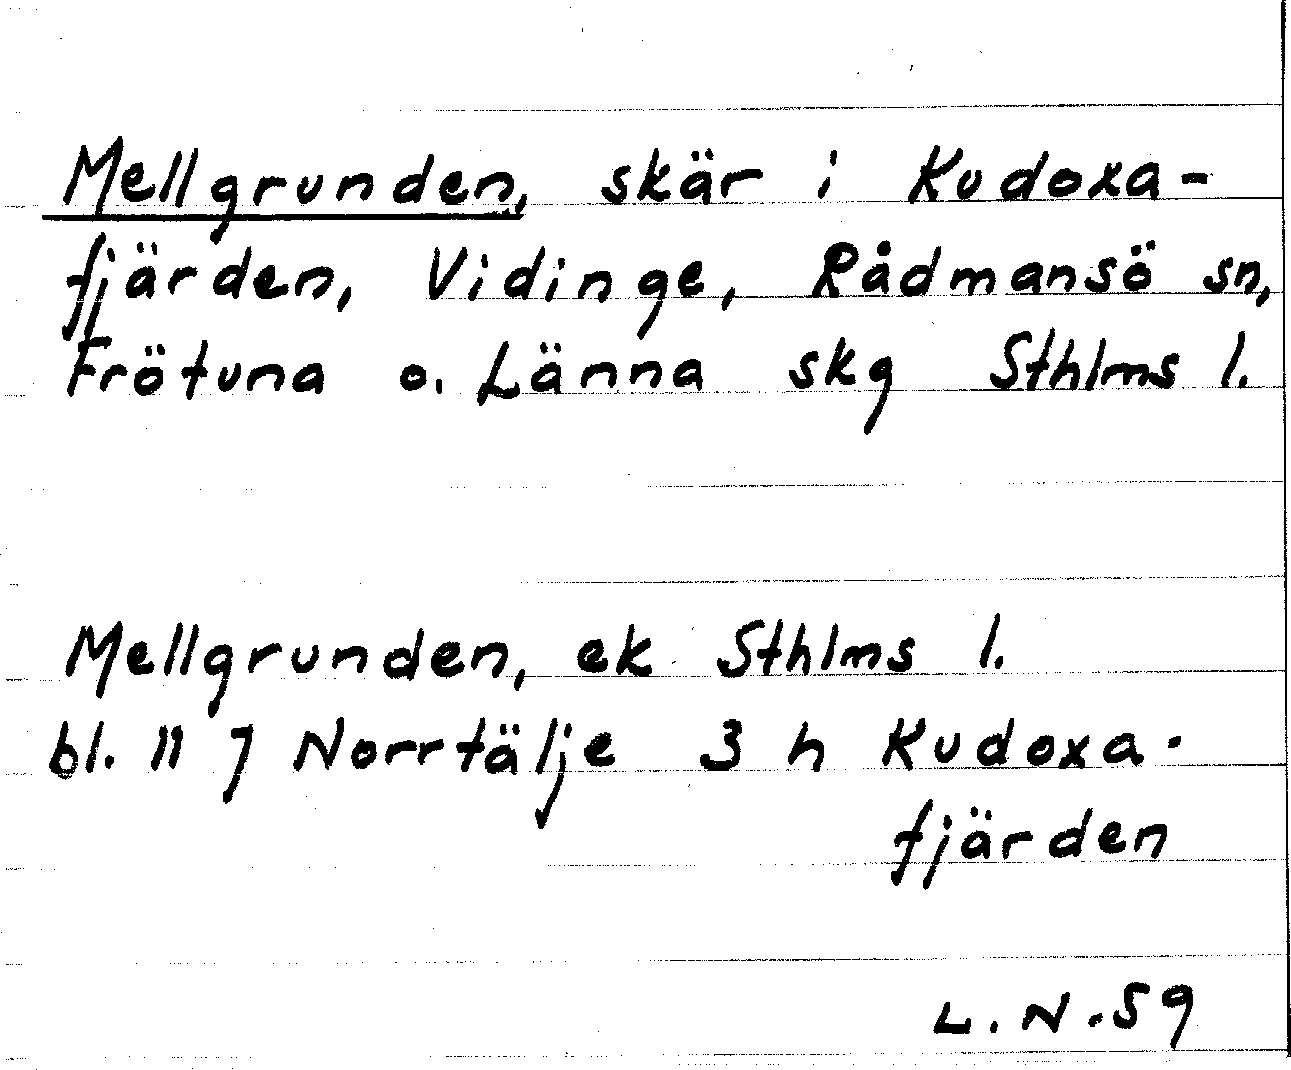 Mellgrunden, skär i Kudoxa-
fjärden, Vidinge, Rådmansö sn,
Frötuna o. Länna skg Sthlms l.
Mellgrunden, ek Sthlms l.
bl. 11 J Norrtälje 3 h Kudoxa-
fjärden
L.N.59